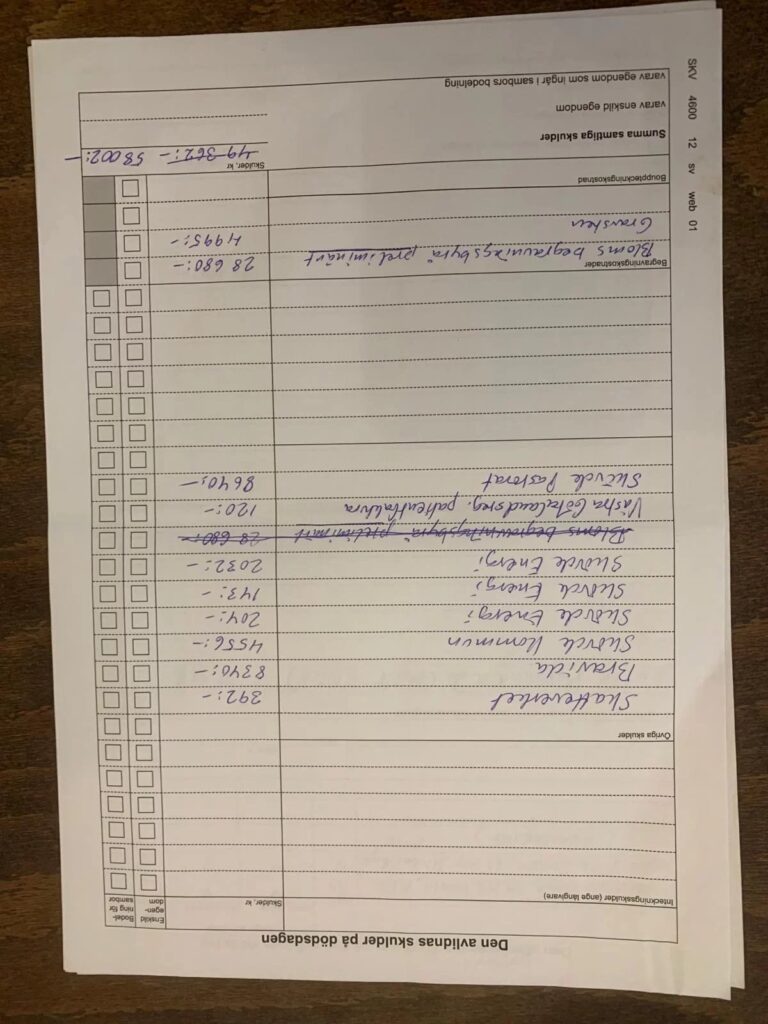 Den avlidnas skulder på dödsdagen
Inteckningsskulder (ange långivare)
Skulder, kr
Enskild egen- dom
Bodel- ning för sambor
Övriga skulder
Skatteverket 392:-
Bravida 8340:-
Skövde Kommun 4556:-
Skövde Energi 204:-
Skövde Energi 143:-
Skövde Energi 2032:-
Bloms begravningsbyrå preliminärt 28 680:-
Västra Götalandsreg. patientfaktura 120:-
Skövde Pastorat 8640:-
Begravningskostnader
Bloms begravningsbyrå preliminärt 28 680:-
4995:-
Gravsten
Bouppteckningskostnad
Skulder, kr
Summa samtliga skulder 49 362:- 58 002:-
varav enskild egendom
varav egendom som ingår i sambors bodelning
SKV 4600 12 sv web 01